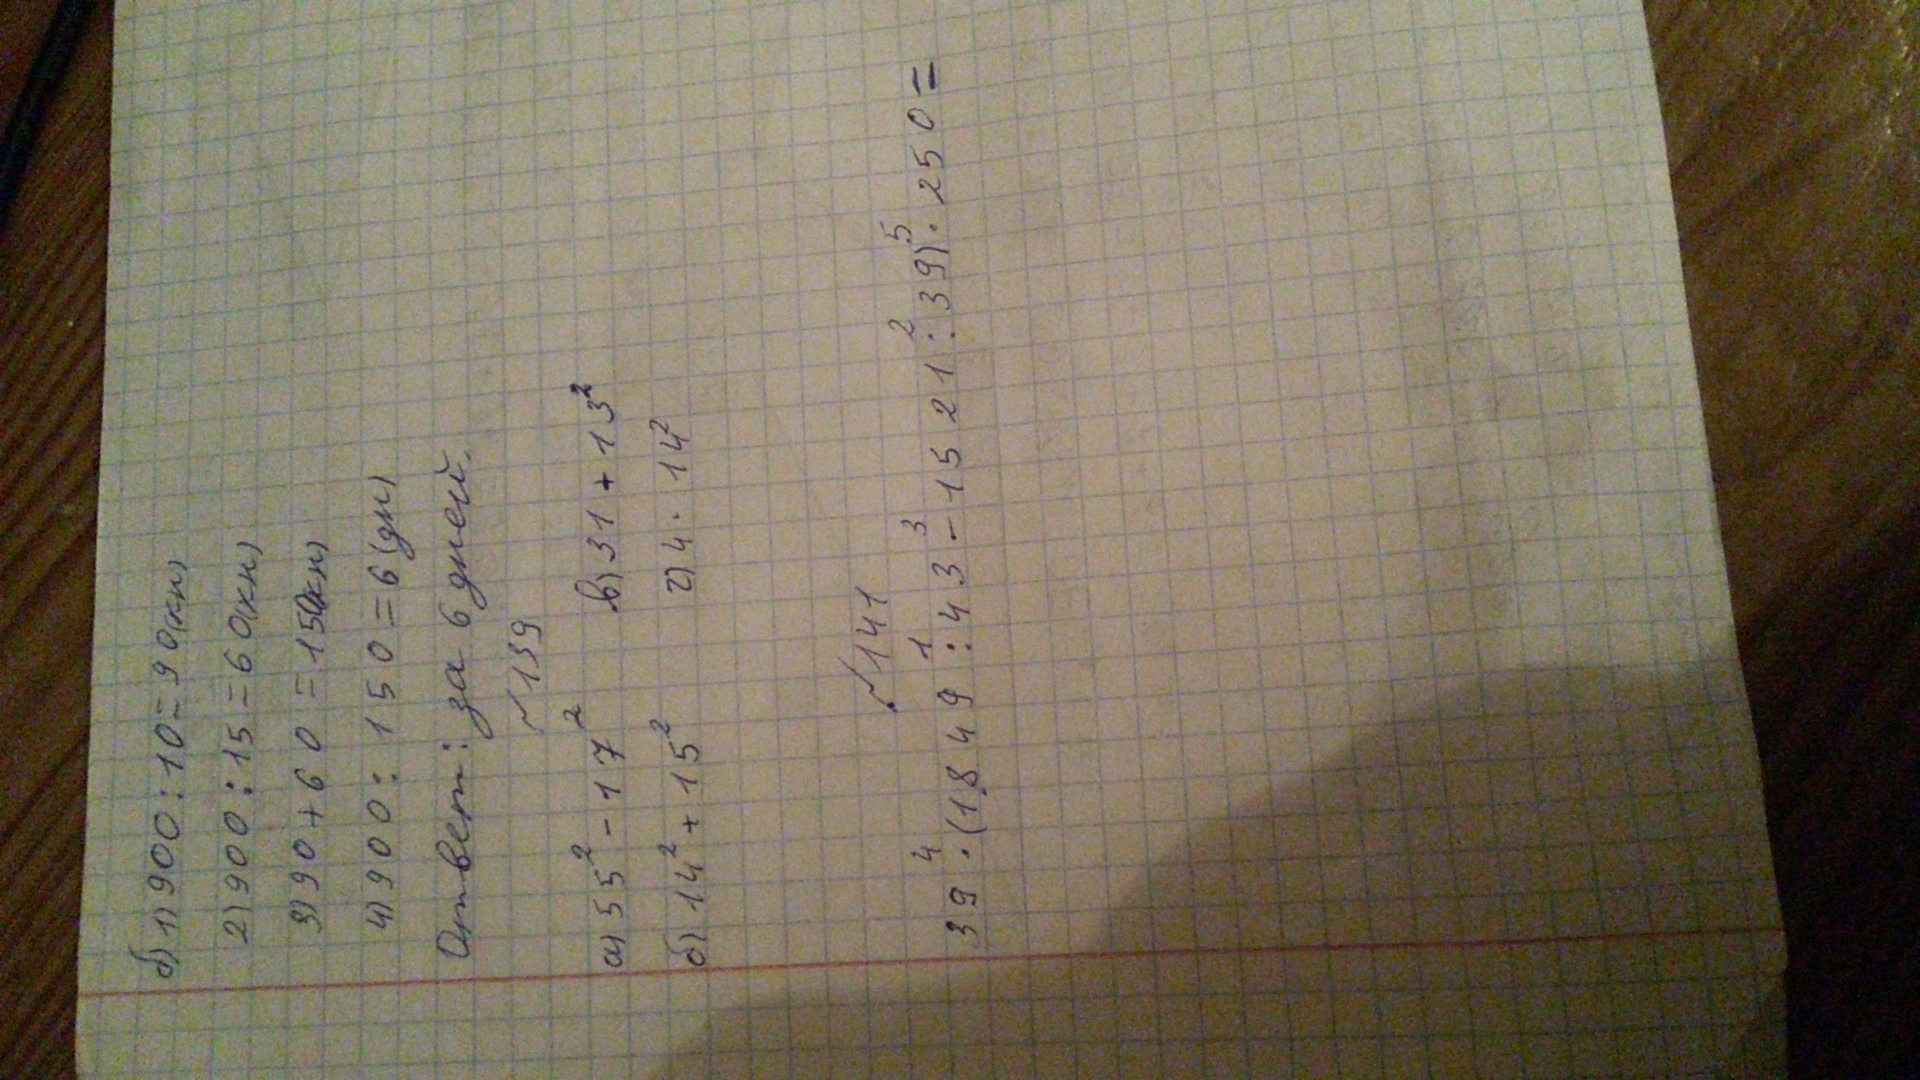 б) 1) 900 : 10 = 90(кн)
2) 900 : 15 = 60(кн)
3) 90 + 60 = 150(кн)
4) 900 : 150 = 6 (дн)
Ответ: за 6 дней.
~139
а) 55² - 17² в) 31 + 13²
б) 14² + 15² г) 4 · 14²
~141
4 1 3 2 5
39 · (1849 : 43 - 1521 : 39) · 250 =